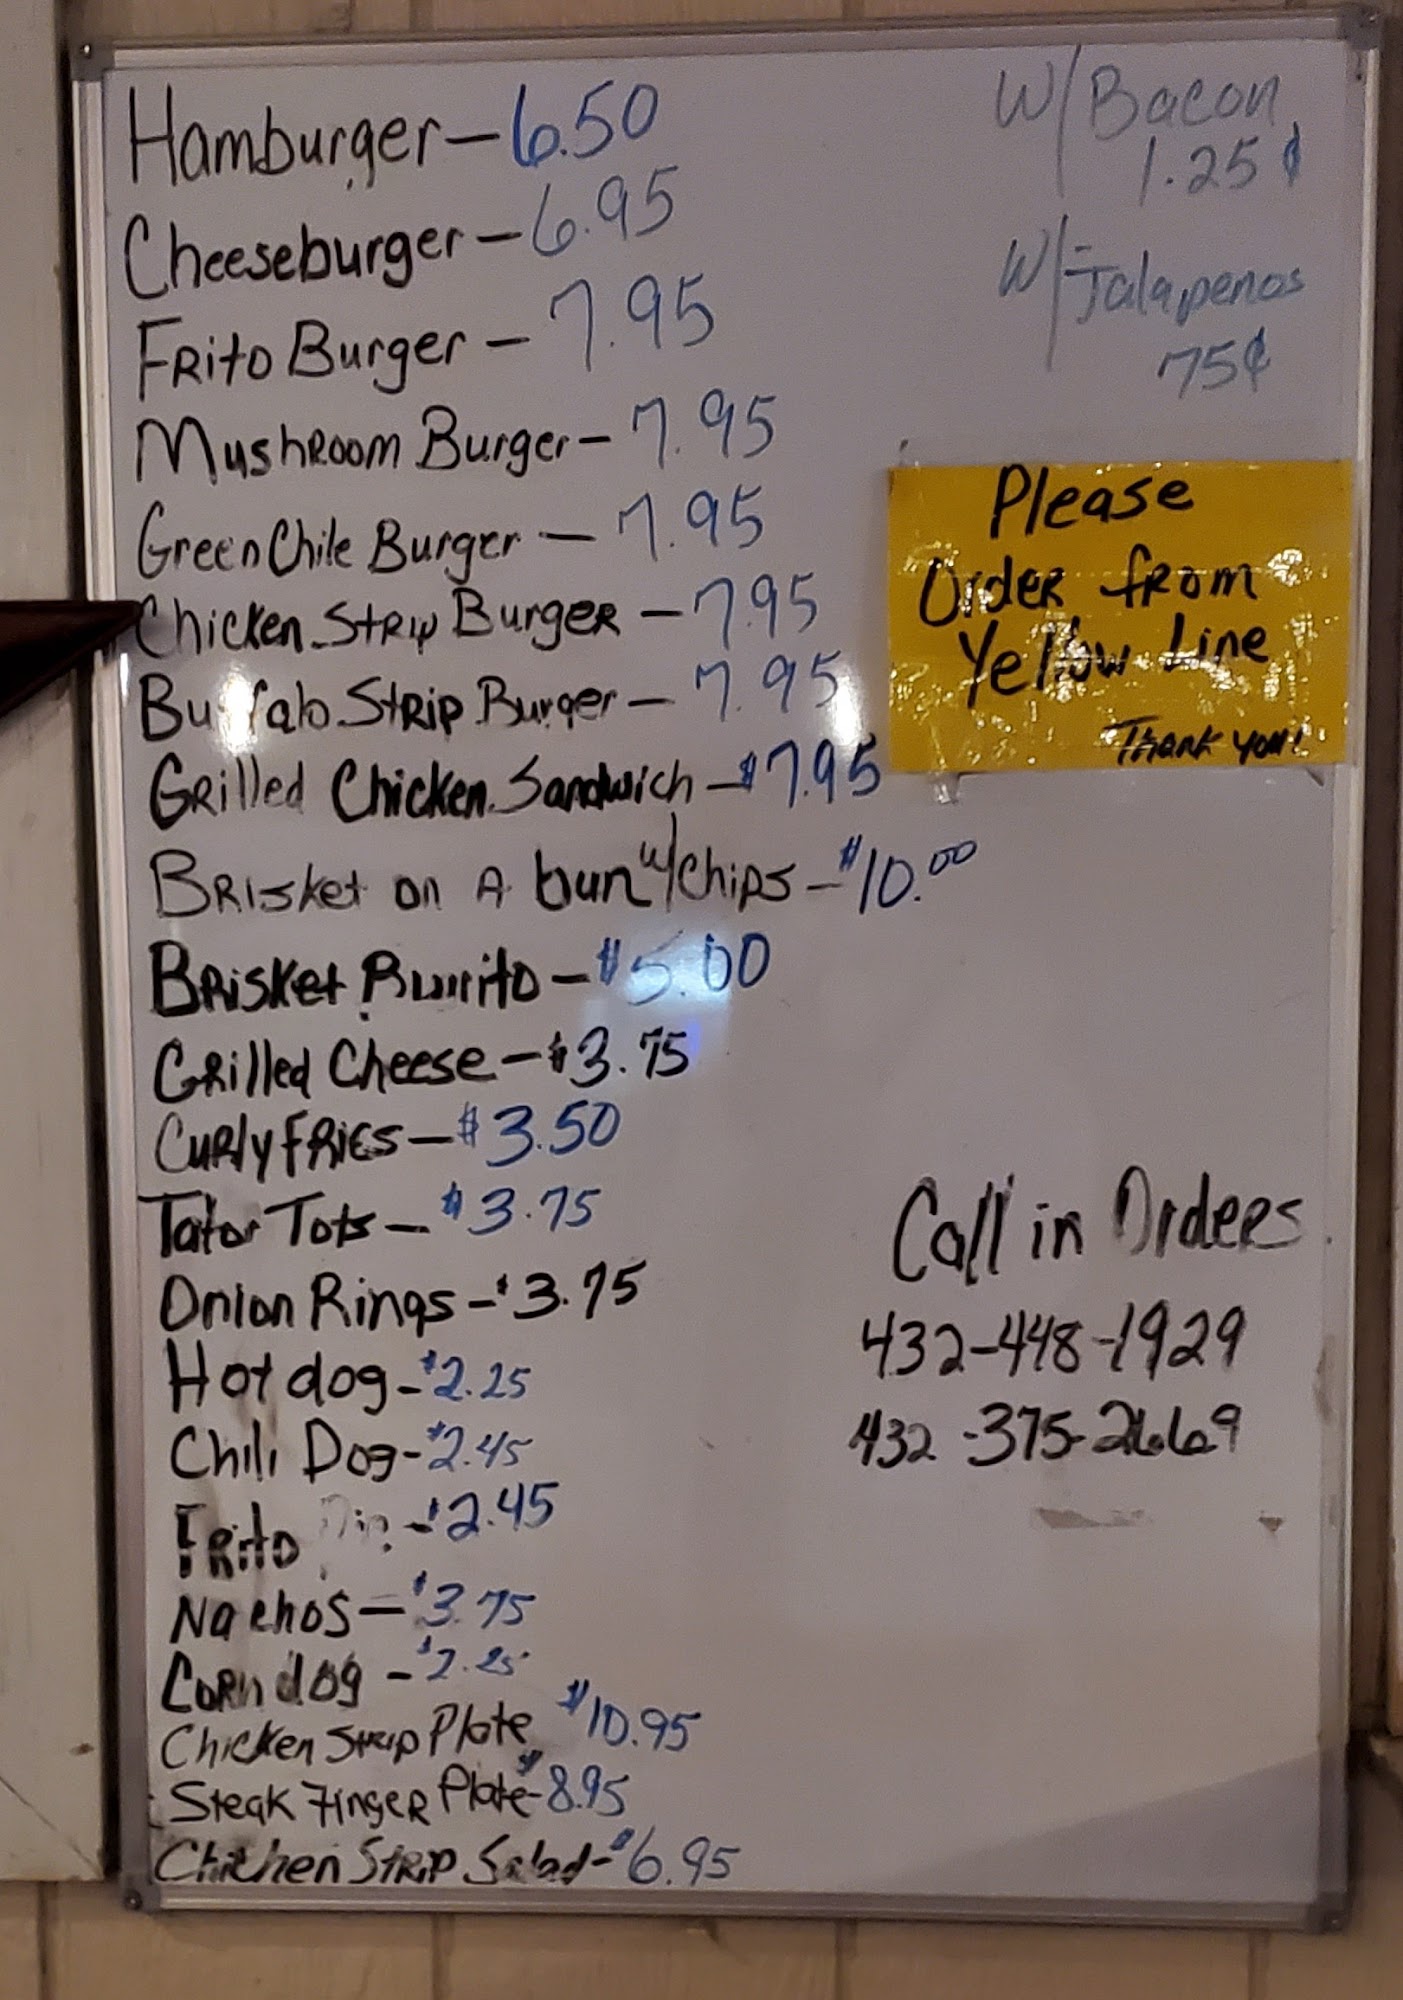 Hamburger - 6.50
Cheeseburger - 6.95
Frito Burger - 7.95
Mushroom Burger - 7.95
Green Chile Burger - 7.95
Chicken Strip Burger - 7.95
Buffalo Strip Burger - 7.95
Grilled Chicken Sandwich - $7.95
Brisket on A bun w/chips - $10.00
Brisket Burrito - $5.00
Grilled Cheese - $3.75
Curly Fries - $3.50
Tator Tots - $3.75
Onion Rings - $3.75
Hot dog - $2.25
Chili Dog - $2.45
Frito - $2.45
Nachos - $3.75
Corn dog - $2.25
Chicken Strip Plate $10.95
Steak Finger Plate - $8.95
Chicken Strip Salad - $6.95
W/Bacon
1.25¢
W/Jalapenos
75¢
Please
Order from
Yellow Line
Thank you!
Call in Orders
432-448-1929
432-375-2669